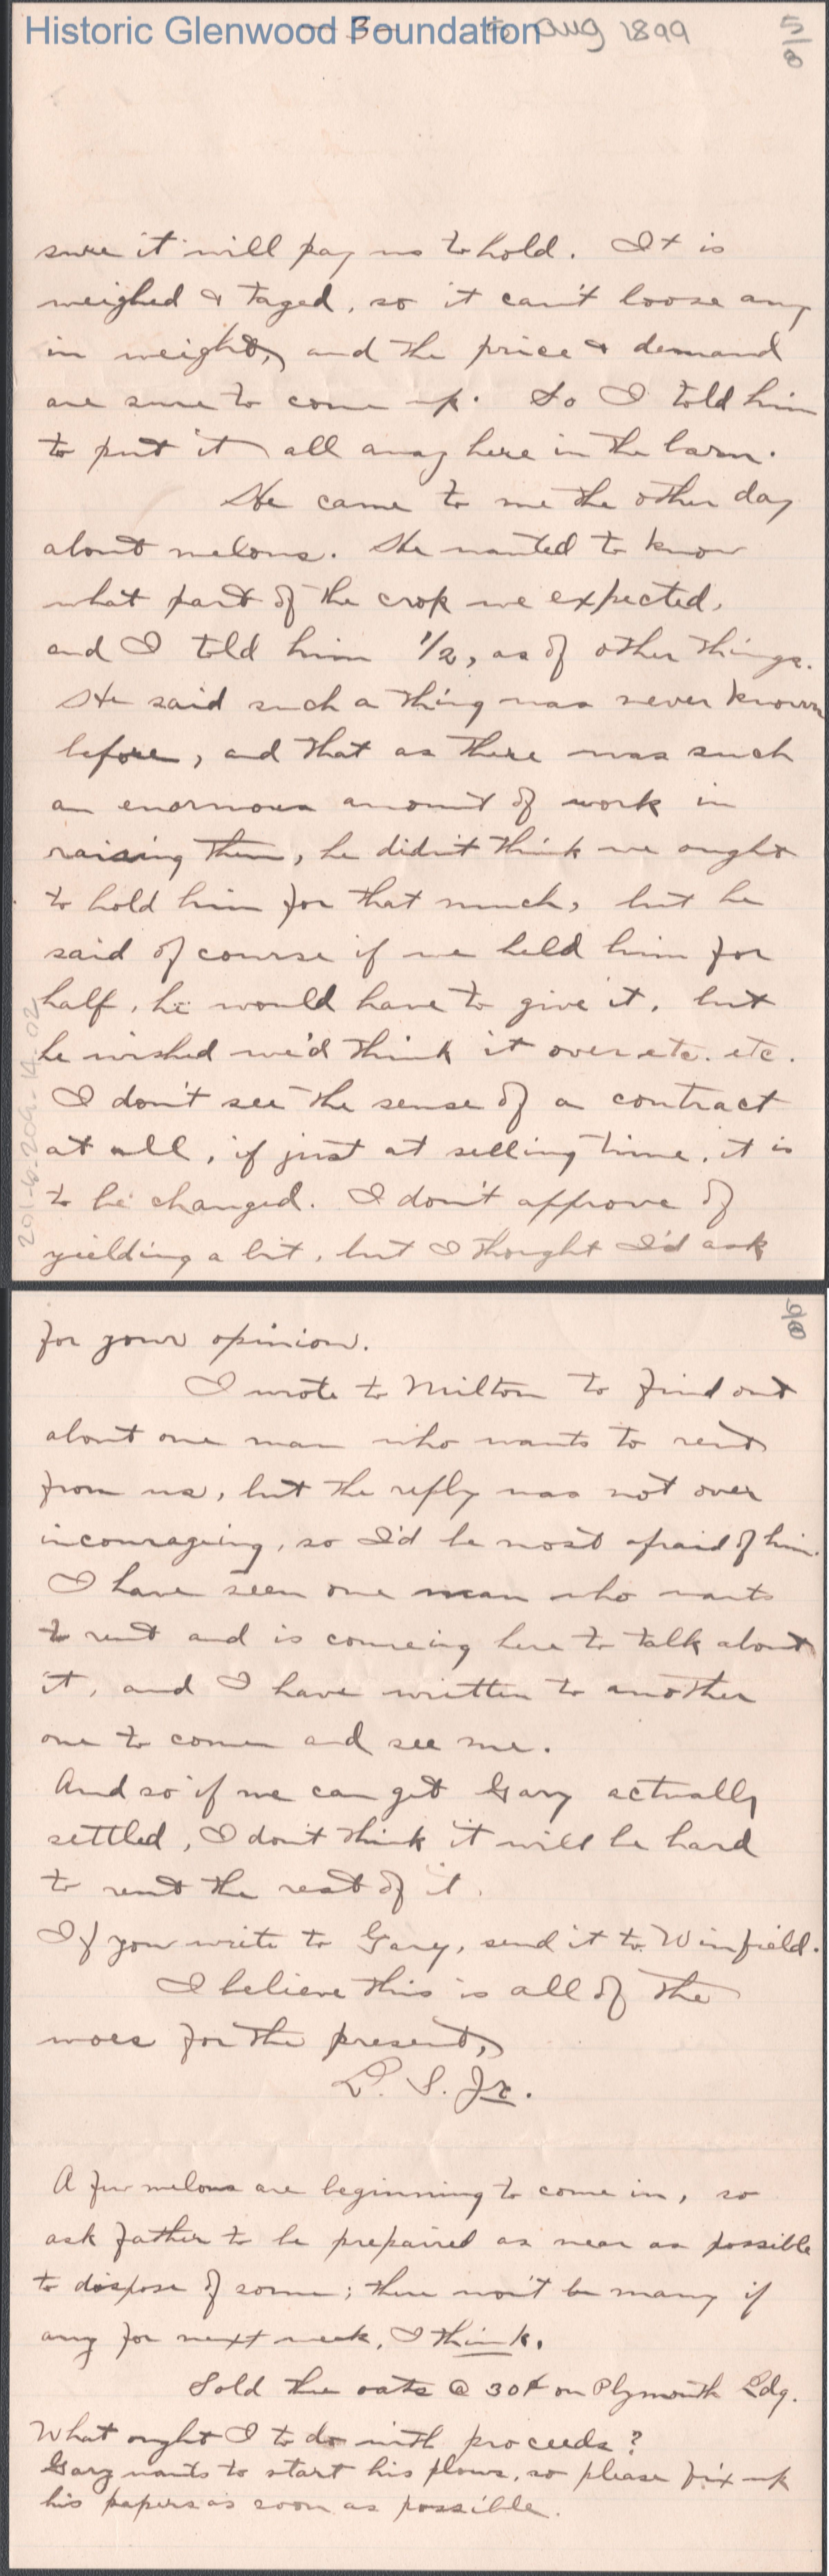 Historic Glenwood Foundation
- 3 - 5 Aug 1899
5/8
sure it will pay us to hold. It is
weighed & taged, so it can't loose any
in weight, and the price & demand
are sure to come up. So I told him
to put it all away here in the barn.
He came to me the other day
about melons. He wanted to know
what part of the crop we expected,
and I told him 1/2, as of other things.
He said such a thing was never known
before, and that as there was such
an enormous amount of work in
raising them, he didn't think we ought
to hold him for that much, but he
said of course if we held him for
half, he would have to give it, but
he wished we'd think it over etc. etc.
I don't see the sense of a contract
at all, if just at selling time, it is
to be changed. I don't approve of
yielding a bit, but I thought I'd ask
6/8
for your opinion.
I wrote to Milton to find out
about one man who wants to rent
from us, but the reply was not over
incourageing, so I'd be most afraid of him.
I have seen one man who wants
to rent and is comeing here to talk about
it, and I have written to another
one to come and see me.
And so if we can get Gary actually
settled, I don't think it will be hard
to rent the rest of it.
If you write to Gary, send it to Winfield.
I believe this is all of the
woes for the present,
L. S. Jr.
A few melons are beginning to come in, so
ask father to be prepaired as near as possible
to dispose of some; there won't be many if
any for next week, I think.
Sold the oats @ 30¢ on Plymouth Ldg.
What ought I to do with proceeds?
Gary wants to start his plows, so please fix up
his papers as soon as possible.